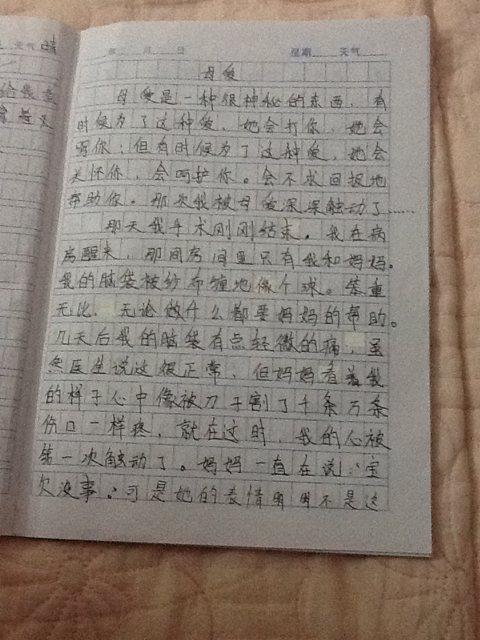 天气 晴
年 月 日 星期 天气
母爱
母爱是一种很神秘的东西，有
时候为了这种爱，她会打你，她会
骂你；但有时候为了这种爱，她会
关怀你，会呵护你。会不求回报地
帮助你。那次我被母爱深深触动了……
那天我手术刚刚结束。我在病
房醒来，那间房间里只有我和妈妈。
我的脑袋被纱布缠地像个球。笨重
无比，无论做什么都要妈妈的帮助。
几天后我的脑袋有点轻微的痛，虽
然医生说这很正常，但妈妈看着我
的样子心中像被刀子割了千条万条
伤口一样疼，就在这时，我的心被
第一次触动了。妈妈一直在说：宝
欠没事。可是她的表情明明不是这